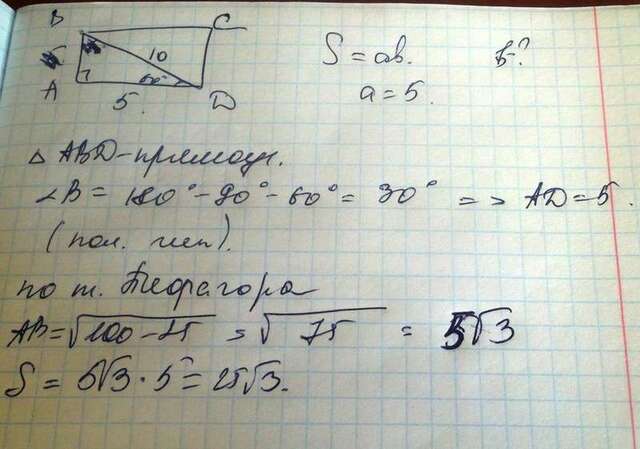 B C
10
60°
A 5. D
S = ab. b-?
a = 5.
△ ABD-прямоуг.
∠B = 180° - 90° - 60° = 30° => AD = 5.
(пол. гип).
по т. Пифагора
AB = √100 - 25 = √75 = 5√3
S = 5√3 · 5 = 25√3.